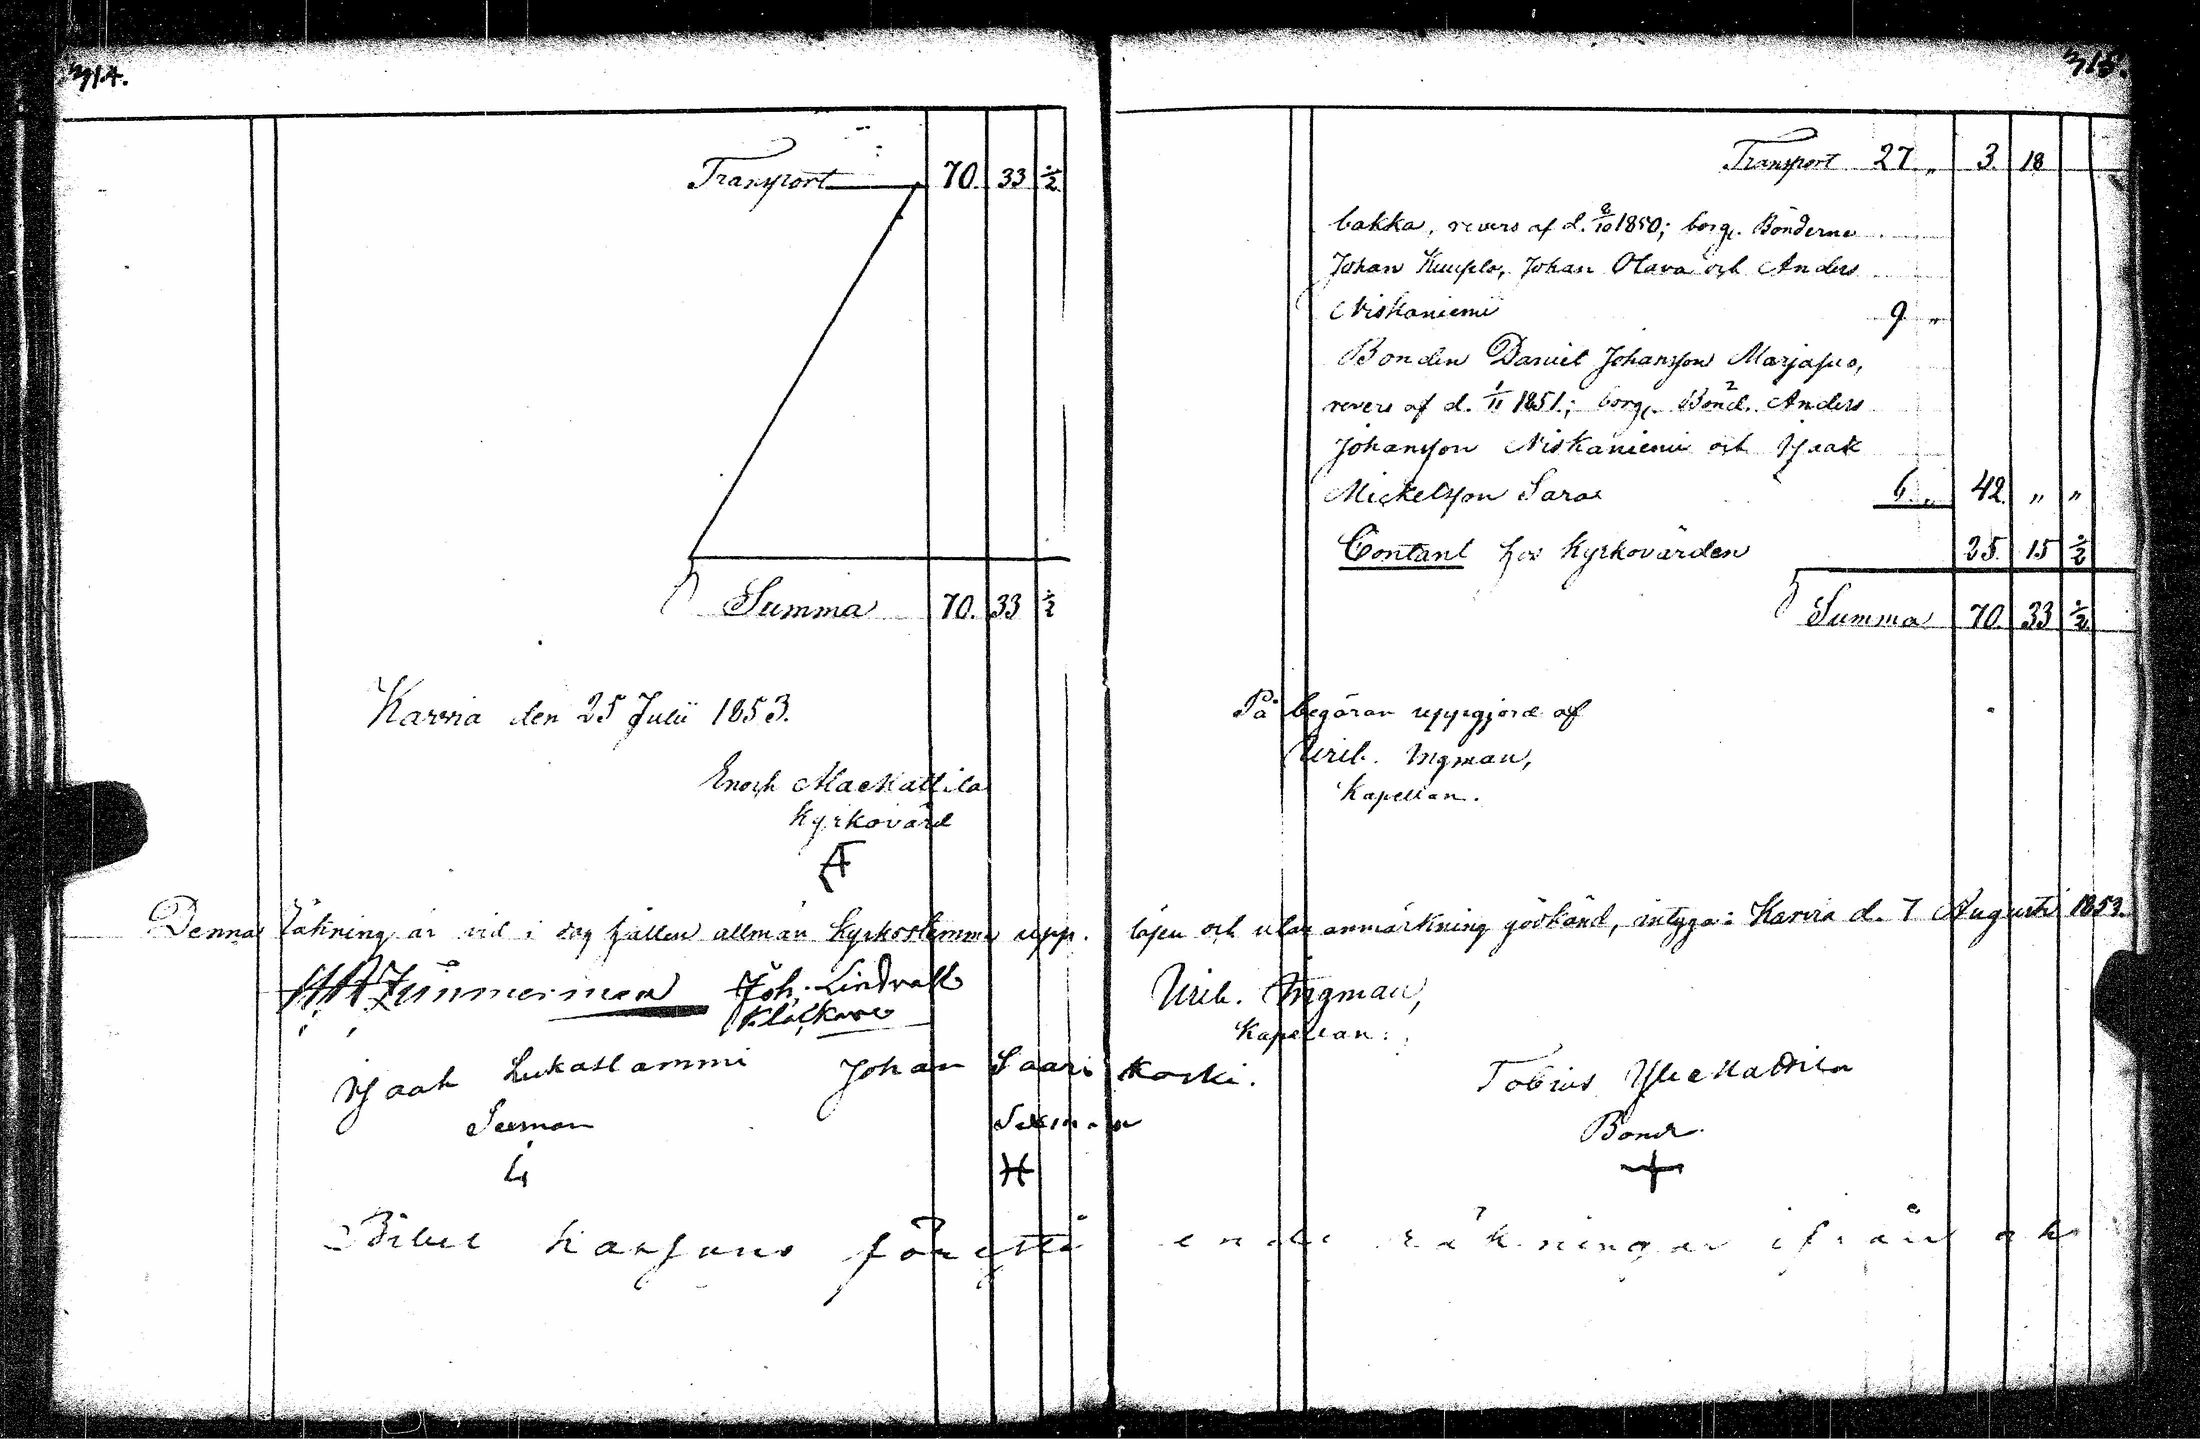 314.
Transport 70. 33 ½
Summa 70. 33 ½
Karvia den 25 Julii 1853.
Enoch MaeKattila
Kyrkovärd
315.
Transport 27 " 3. 18
bakka, revers af d. 8/10 1850; borg. Bönderne
Johan Kuuslo, Johan Olava och Anders
Niskaniemi 9 "
Bonden Daniel Johansson Marjasuo,
revers af d. 1/11 1851.; borg. Bönd. Anders
Johansson Niskaniemi och Isaak
Mickelsson Sara 6. " 42. " "
Contant hos Kyrkovärden 25. 15 ½
Summa 70. 33 ½
På begäran uppgjord af
Urib. Ingman,
Kapellan.
Denna räkning är vid i dag hållen allmän Kyrkostemma upp- läsen och utan anmärkning godkänd, intyga: Karvia d. 7 Augusti 1853.
Zimmerman Joh. Lindvall Urib. Ingman,
Klockare Kapellan.
Isaak Lukaslammi Johan Saarikoski. Tobias YliKattila
Sexman Sexman Bonde
Bibel Kassans förestående räkningar ifrån och